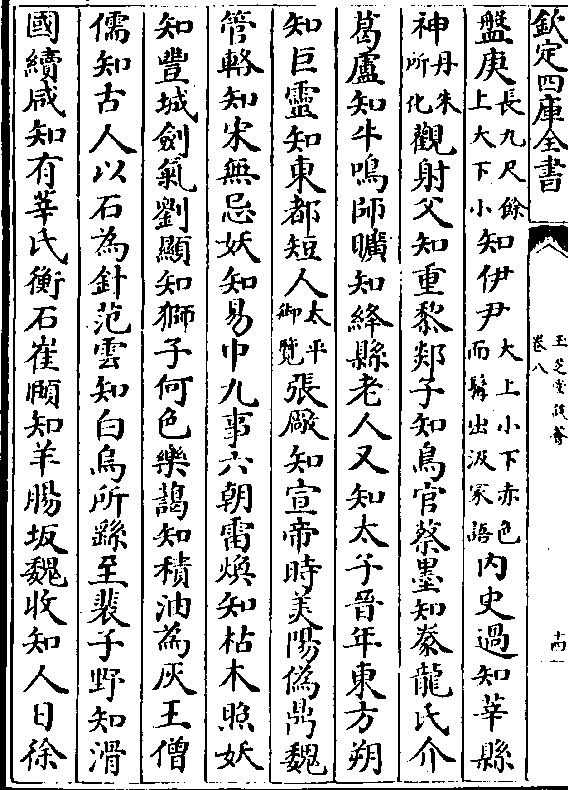 欽定四庫全書
玉芝堂談薈
卷八
十四
盤庚長九尺餘上大下小知伊尹大上小下赤色而髯出汲冢語内史過知莘縣
神丹朱所化觀射父知重黎郯子知鳥官蔡墨知豢龍氏介
葛盧知牛鳴師曠知絳縣老人又知太子晉年東方朔
知巨靈知東都短人太平御覽張敞知宣帝時美陽偽鼎魏
管輅知宋無忌妖知易中九事六朝雷煥知枯木照妖
知豐城劍氣劉顯知獅子何色樂藹知積油為灰王僧
儒知古人以石為針范雲知白烏所繇至裴子野知滑
國續咸知有莘氏衡石崔頤知羊腸坂魏收知人日徐